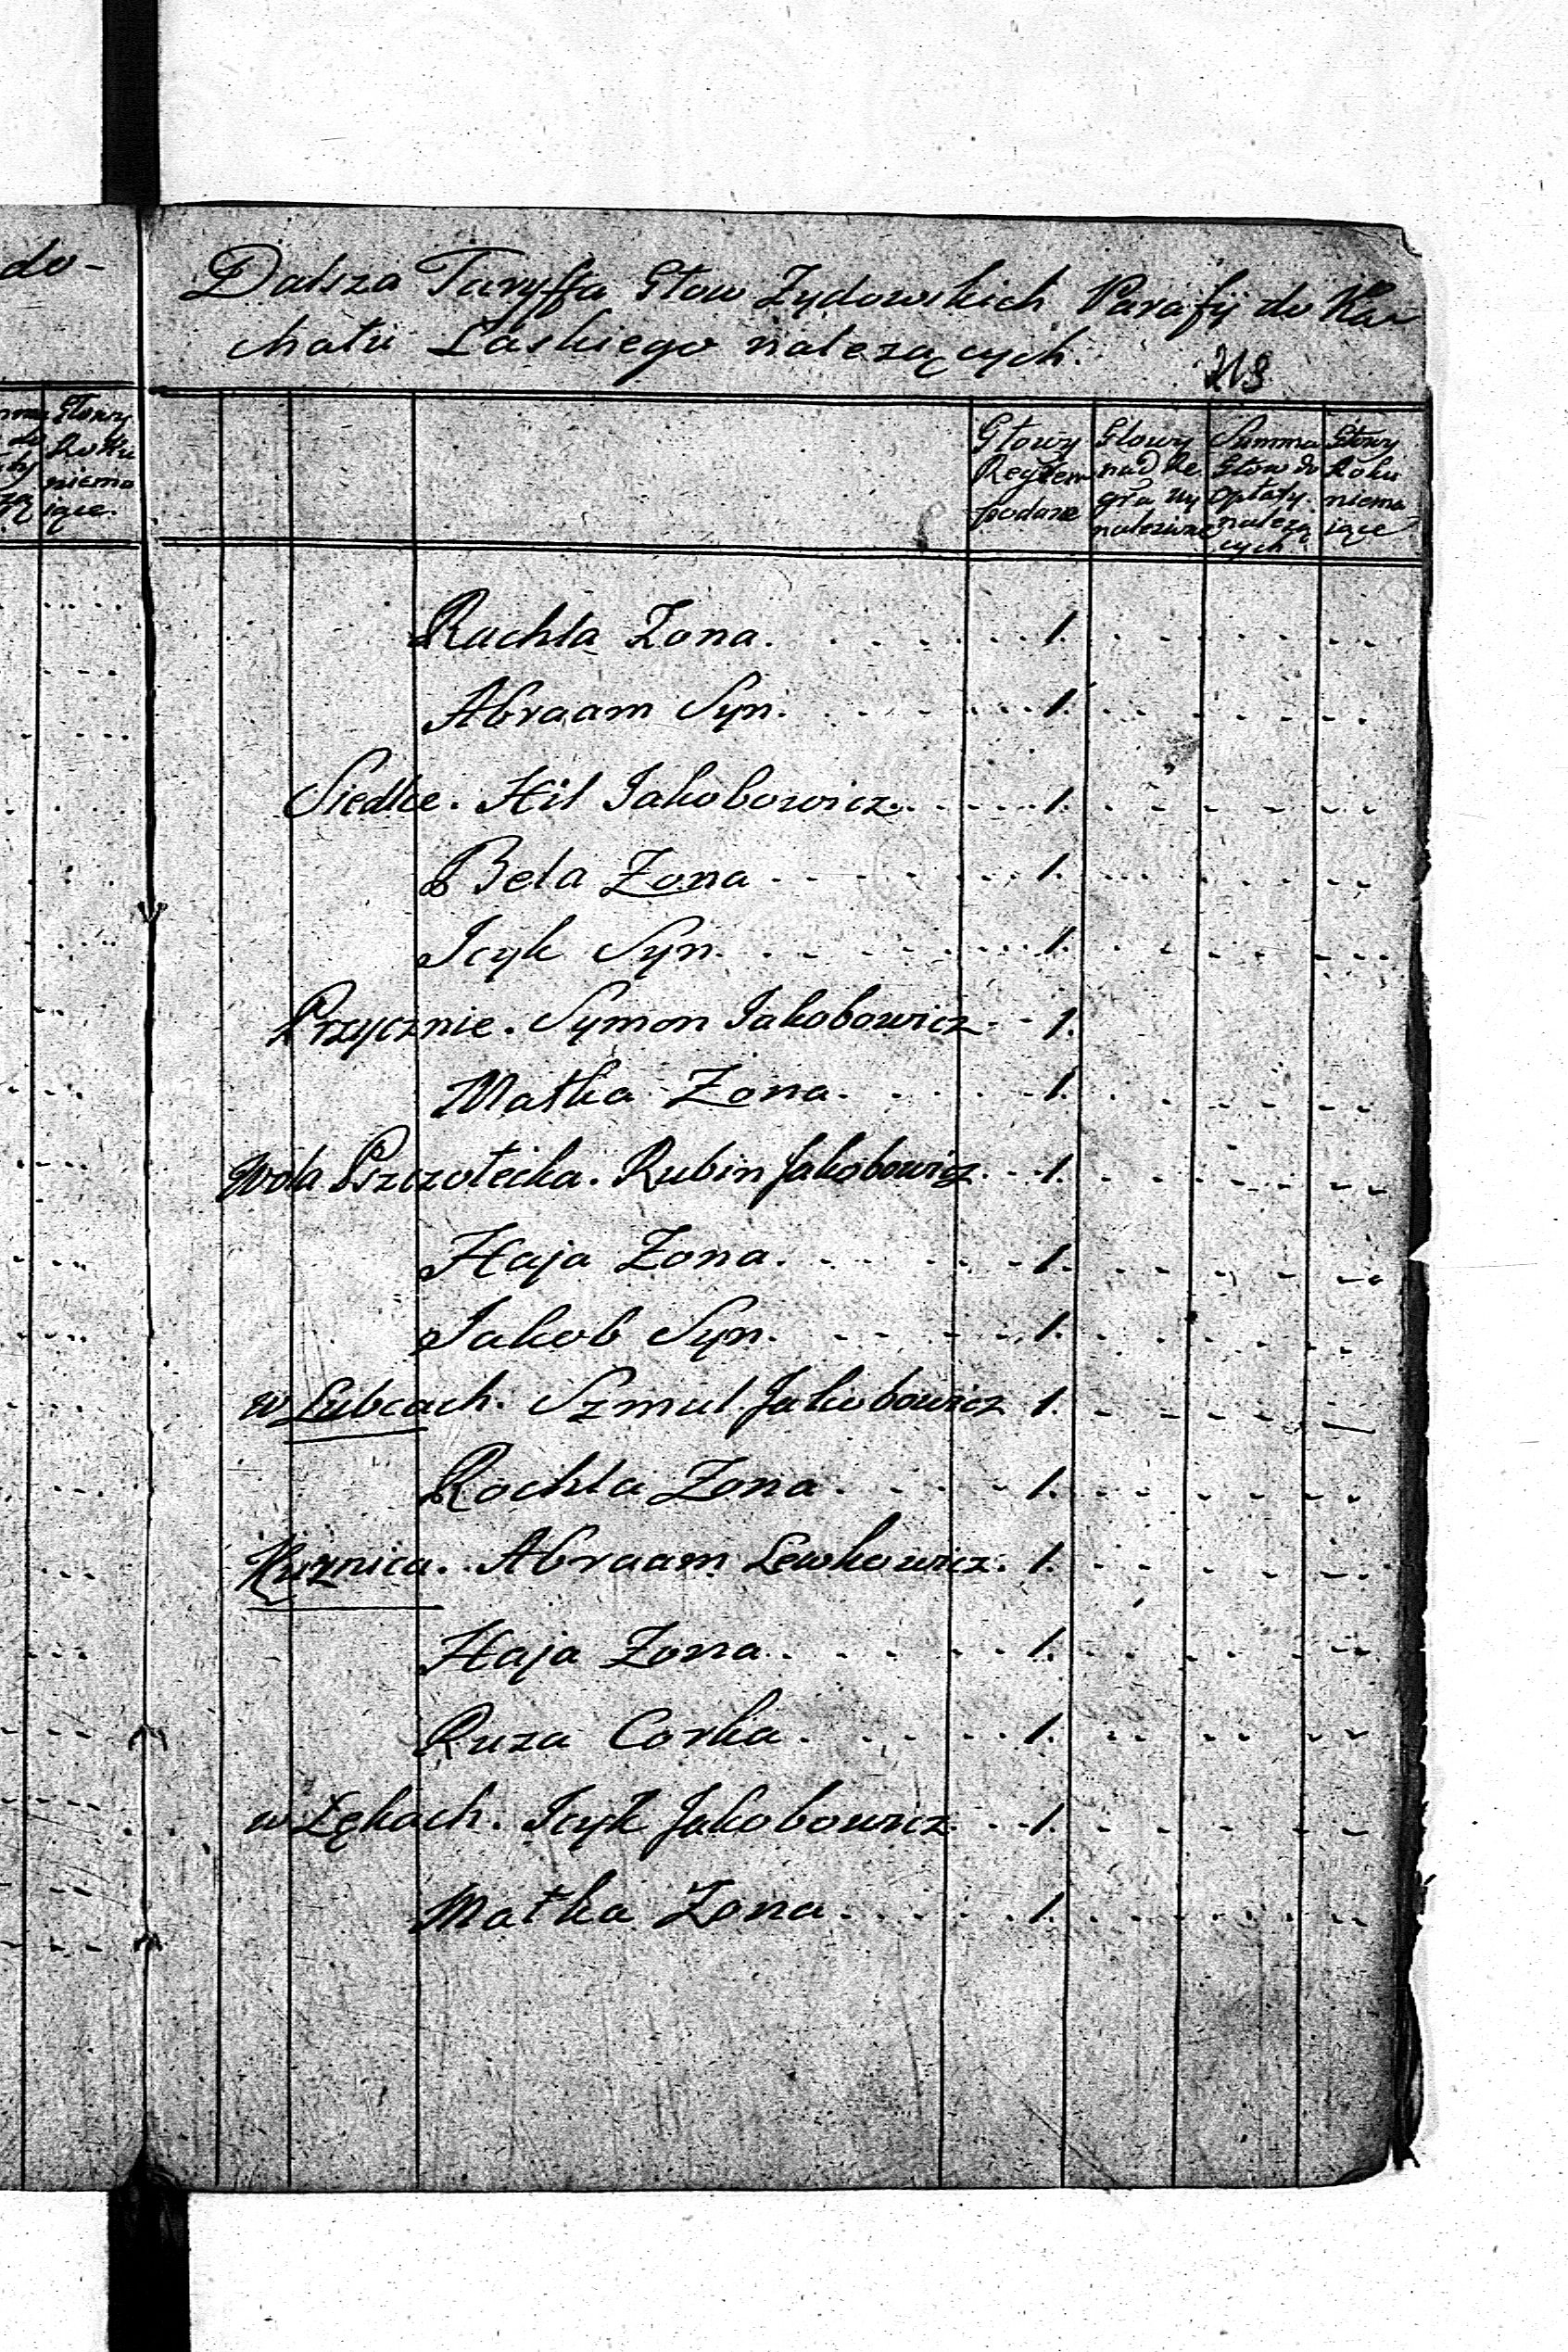 do-
Dalsza Taryffa Głow Zydowskich Parafij do Ka-
chału Łaskiego nalezących.
Głowy
Roku
niema
iące.
Głowy
Regtem
podane
Głowy
nad Re
gra wy
nalezione
Summa
Głow do
Opłaty
nalezą
cych
Głowy
Roku
niema
iące
Rachla Zona. 1.
Abraam Syn. 1.
Siedlce. Hil Jakobowicz. 1.
Bela Zona 1.
Icyk Syn. 1.
Przycznie. Symon Jakobowicz. 1.
Matka Zona. 1.
Wola Pszczołecka. Rubin Jakobowicz. 1.
Haja Zona. 1.
Jakob Syn. 1.
w Lubcach. Szmul Jakobowicz 1.
Rochla Zona. 1.
Kuznica. Abraam Lewkowicz. 1.
Haja Zona. 1.
Ruza Corka. 1.
w Łękach. Icyk Jakobowicz. 1.
Matka Zona. 1.